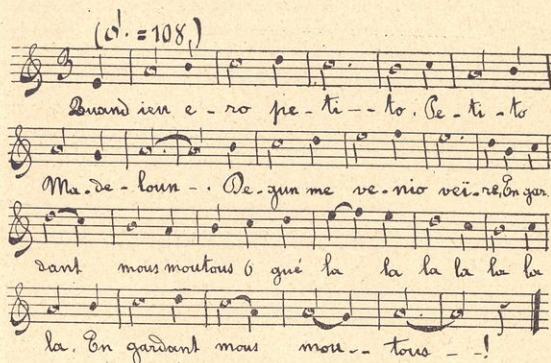 (𝅗𝅥. = 108)
3
Quand ieu e-ro pe-ti--to. Pe-ti-to
Ma-de-loun-. De-gun me ve-nio veï-re, En gar
dant mous moutous ô gué la la la la la la
la. En gardant mous mou-- tous --!